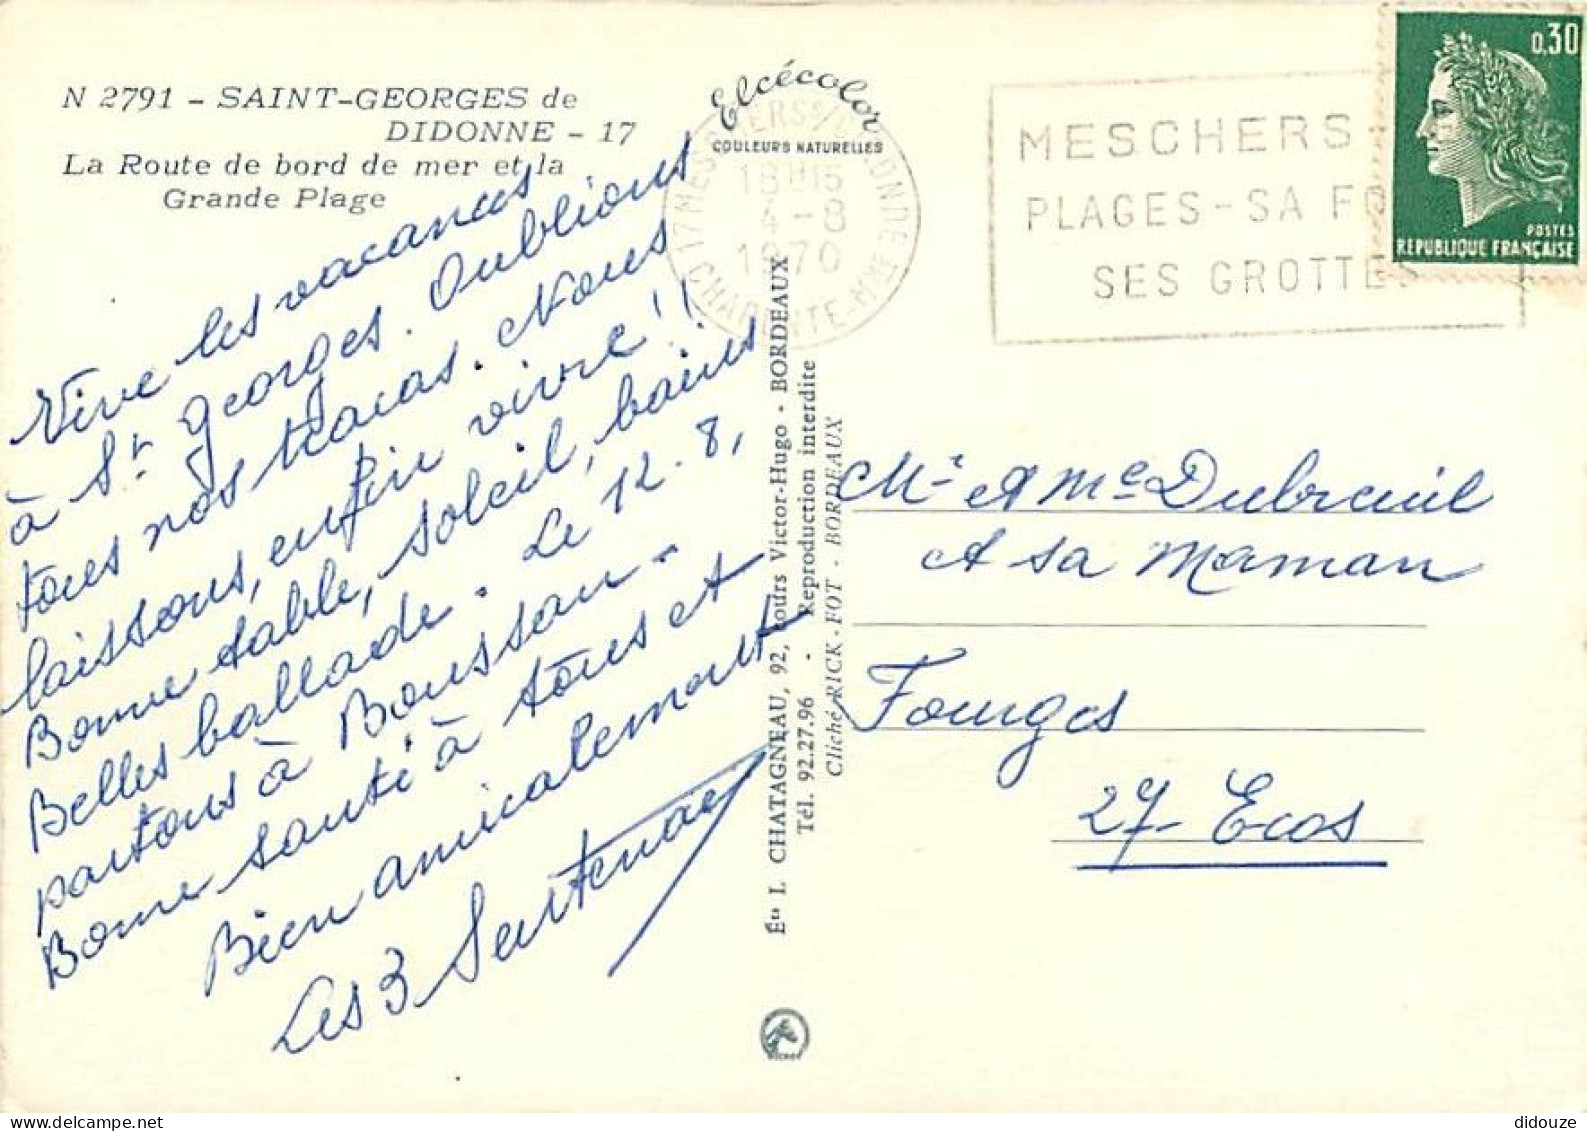 N 2791 - SAINT-GEORGES de
DIDONNE - 17
La Route de bord de mer et la
Grande Plage
Elcécolor
COULEURS NATURELLES
17 MESCHERS S/ GIRONDE
18H15
4-8
1970
CHARENTE-MME
MESCHERS
PLAGES - SA FO
SES GROTTES
0,30
POSTES
REPUBLIQUE FRANÇAISE
Vive les vacances
à St georges. Oublions
tous nos tracas. Nous
laissons, enfin vivre!!
Bonne table, soleil, bains
Belles ballade. Le 12.8,
partons à Boussan.
Bonne santé à tous et
Bien amicalement
Les 3
Éts L. CHATAGNEAU, 92, cours Victor-Hugo - BORDEAUX
Tél. 92.27.96 - Reproduction interdite
Cliché RICK-FOT - BORDEAUX
Mr et Mme Dubreuil
et sa Maman
Fourges
27- Ecos
didouze